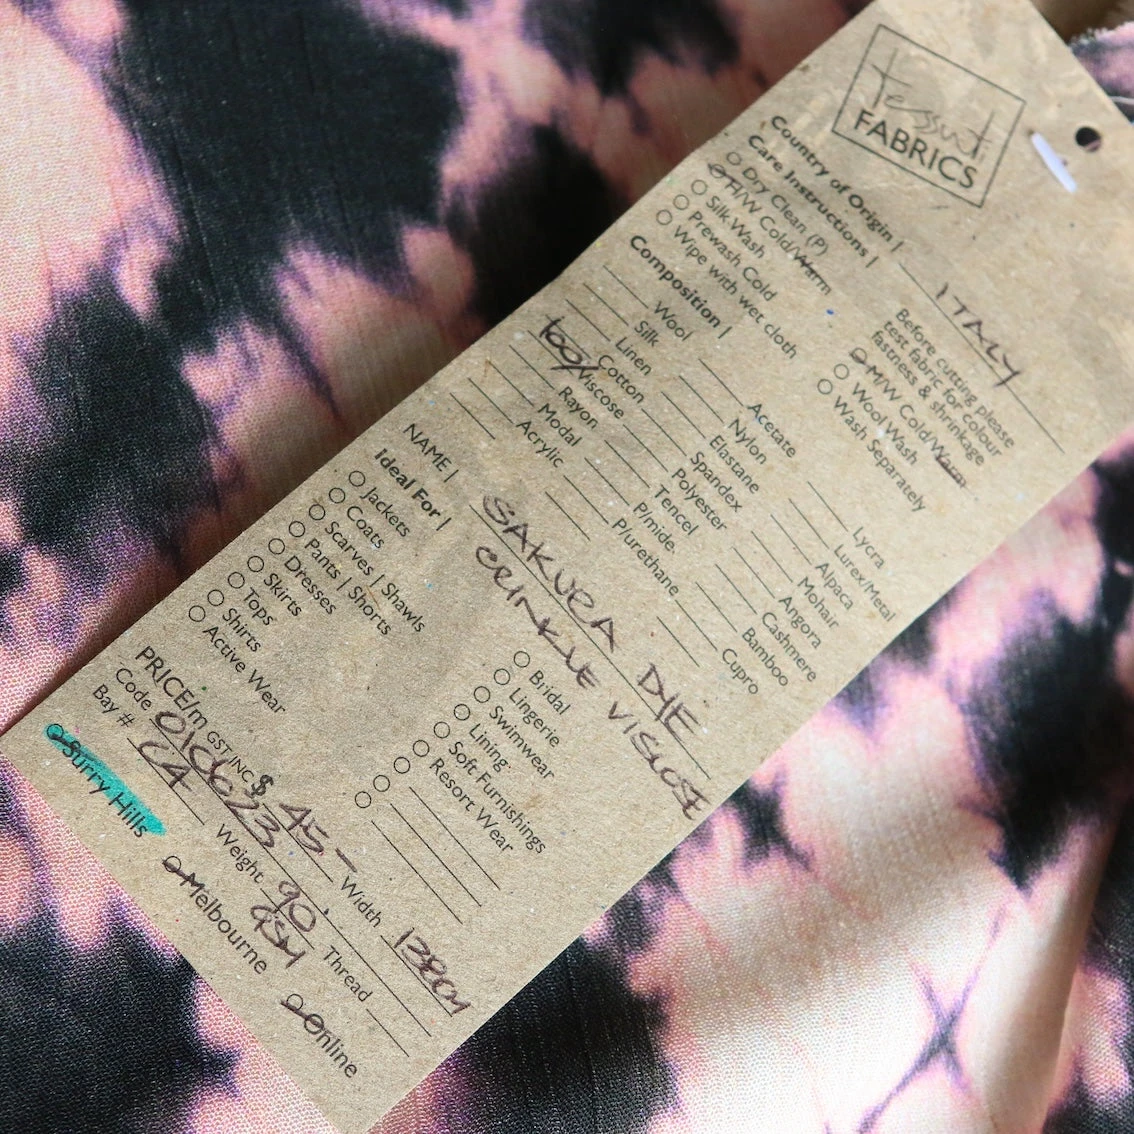 Tessuti
FABRICS
Country of Origin | ITALY
Care Instructions |
Dry Clean (P)
H/W Cold/Warm
Silk Wash
Prewash Cold
Wipe with wet cloth
Before cutting please
test fabric for Colour
fastness & shrinkage
M/W Cold/Warm
Wool Wash
Wash Separately
Composition |
Wool
Silk
Linen
Cotton
100% Viscose
Rayon
Modal
Acrylic
Acetate
Nylon
Elastane
Spandex
Polyester
Tencel
P/mide.
P/urethane
Lycra
Lurex/Metal
Alpaca
Mohair
Angora
Cashmere
Bamboo
Cupro
NAME | SAKURA DYE
CRINKLE VISCOSE
Ideal For |
Jackets
Coats
Scarves | Shawls
Pants | Shorts
Dresses
Skirts
Tops
Shirts
Active Wear
Bridal
Lingerie
Swimwear
Lining
Soft Furnishings
Resort Wear
PRICE/m GST INC $ 45- Width 138cm
Code Weight 90 GSM Thread
Bay # C4
Surry Hills Melbourne Online